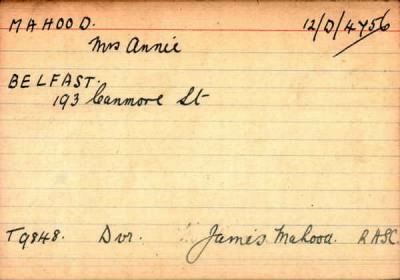 MAHOOD. 12/D/4756
Mrs Annie
BELFAST.
193 Canmore St
T9848. Dvr. James Mahood. RASC.